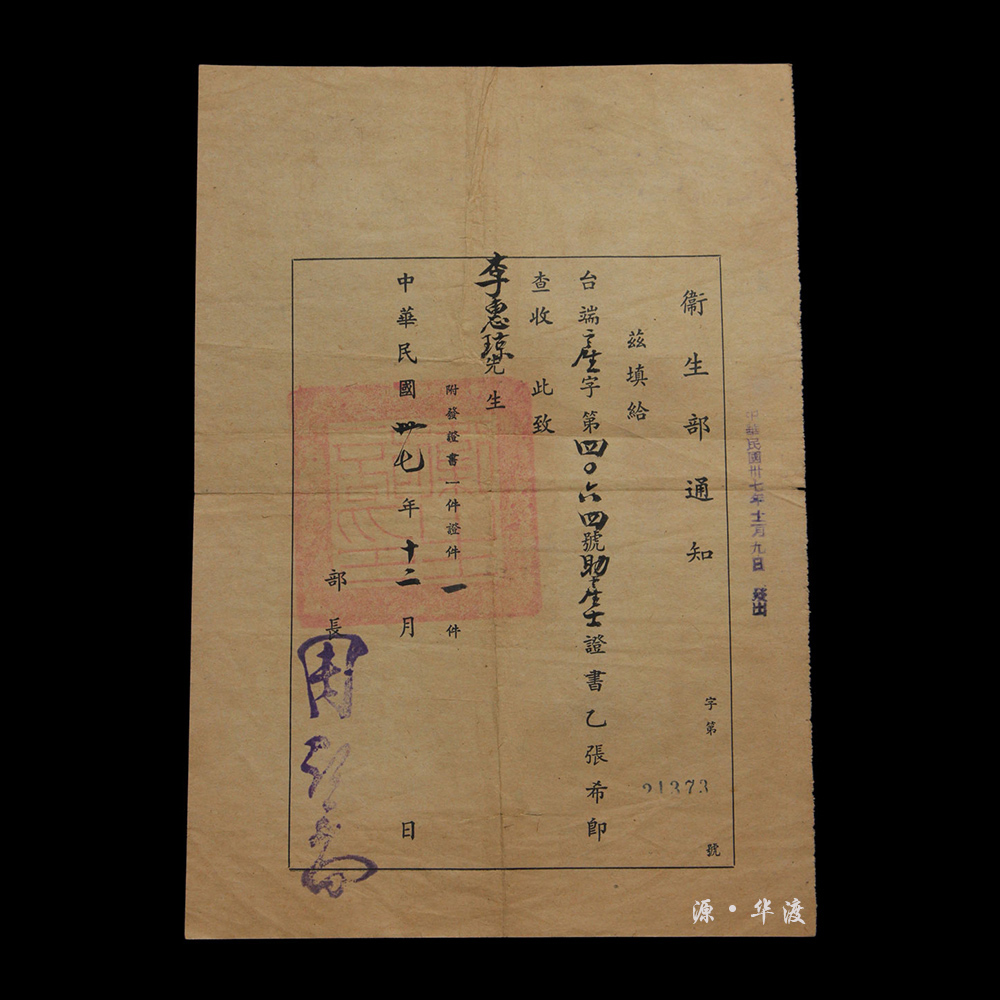 中華民國卅七年十二月九日 發出
衞生部通知
字第 21373 號
茲填給
台端產字第四〇六四號助產士證書乙張希卽
查收 此致
李惠琼先生
附發證書一件證件一件
中華民國卅七年十二月 日
部長
源·华渡